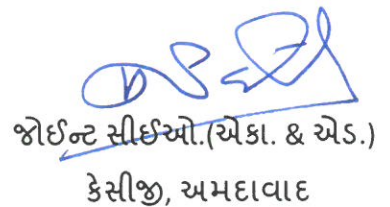 જોઈન્ટ સીઈઓ.(એકા. & એડ.)
કેસીજી, અમદાવાદ